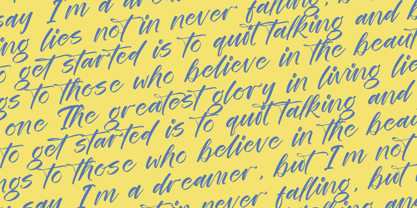 say I'm a
ing lies not in never falling,
to get started is to quit talking and
gs to those who believe in the beaut
one The greatest glory in living lie
to get started is to quit talking and
ngs to those who believe in the beau
say I'm a dreamer, but I'm not
in never falling, but
talking